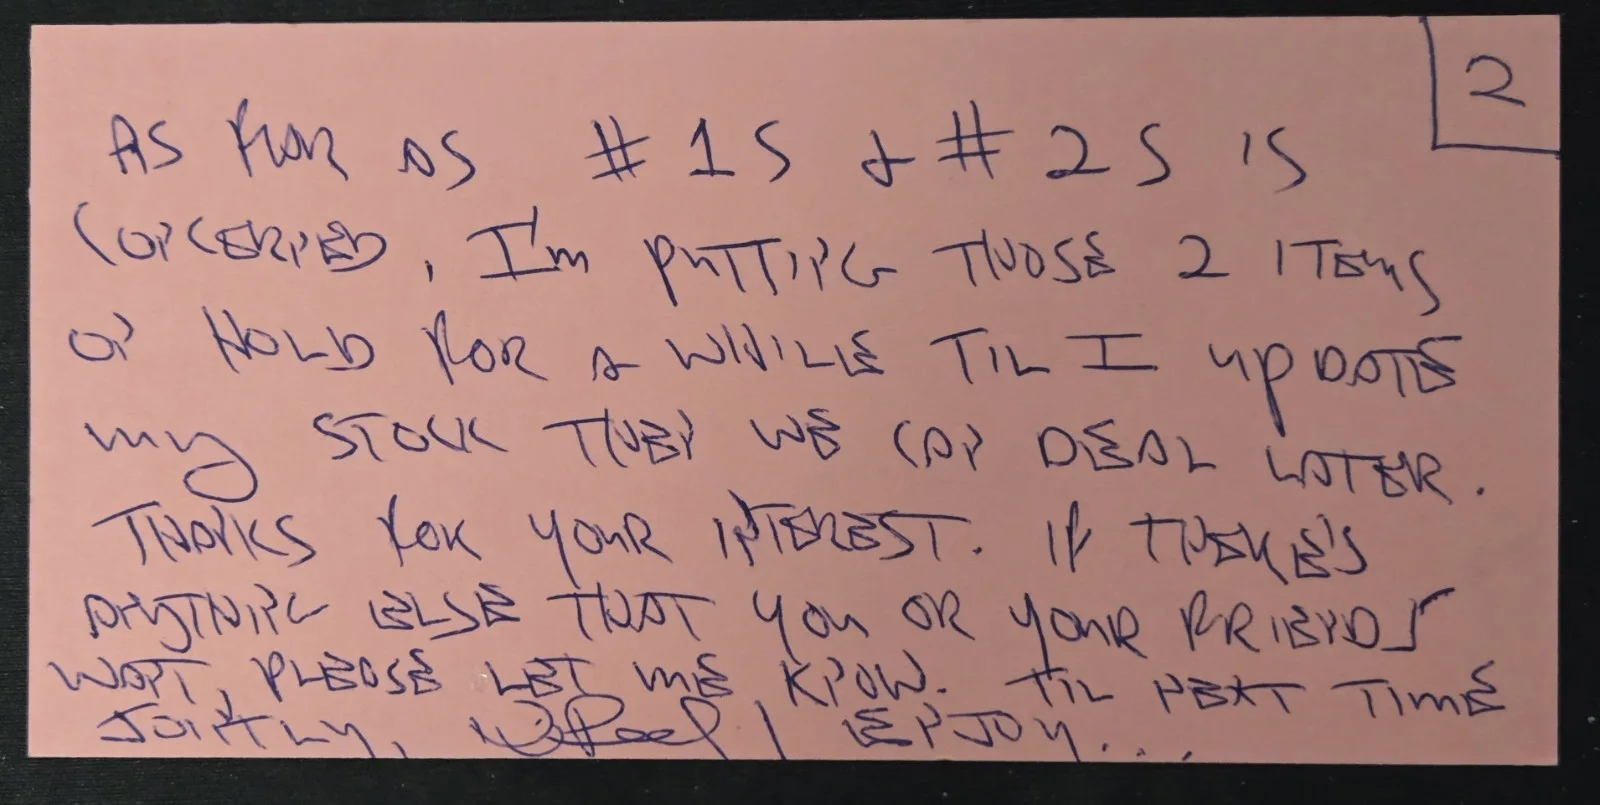 2
AS FOR AS #1S & #2S IS
CONCERNED, I'm PUTTING THOSE 2 ITEMS
ON HOLD FOR A WHILE TIL I UPDATE
my STOCK THEN WE CAN DEAL LATER.
THANKS FOR YOUR INTEREST. IF THERE'S
ANYTHING ELSE THAT YOU OR YOUR FRIENDS
WANT, PLEASE LET ME KNOW. TIL NEXT TIME
JOINTLY, ENJOY....